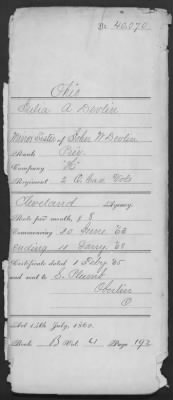 No. 40.070
Ohio
Julia A Devlin
Minor Sister of John W Devlin
Rank Priv
Company "H"
Regiment 2 O. Cav. Vols
Cleveland Agency.
Rate per month, $ 8
Commencing 20 June '63
ending 11 Jany. '68
Certificate dated 1 Feby '65
and sent to S. Plumb
Oberlin
O
Act 14th July, 1862.
Book B Vol. 41 Page 192